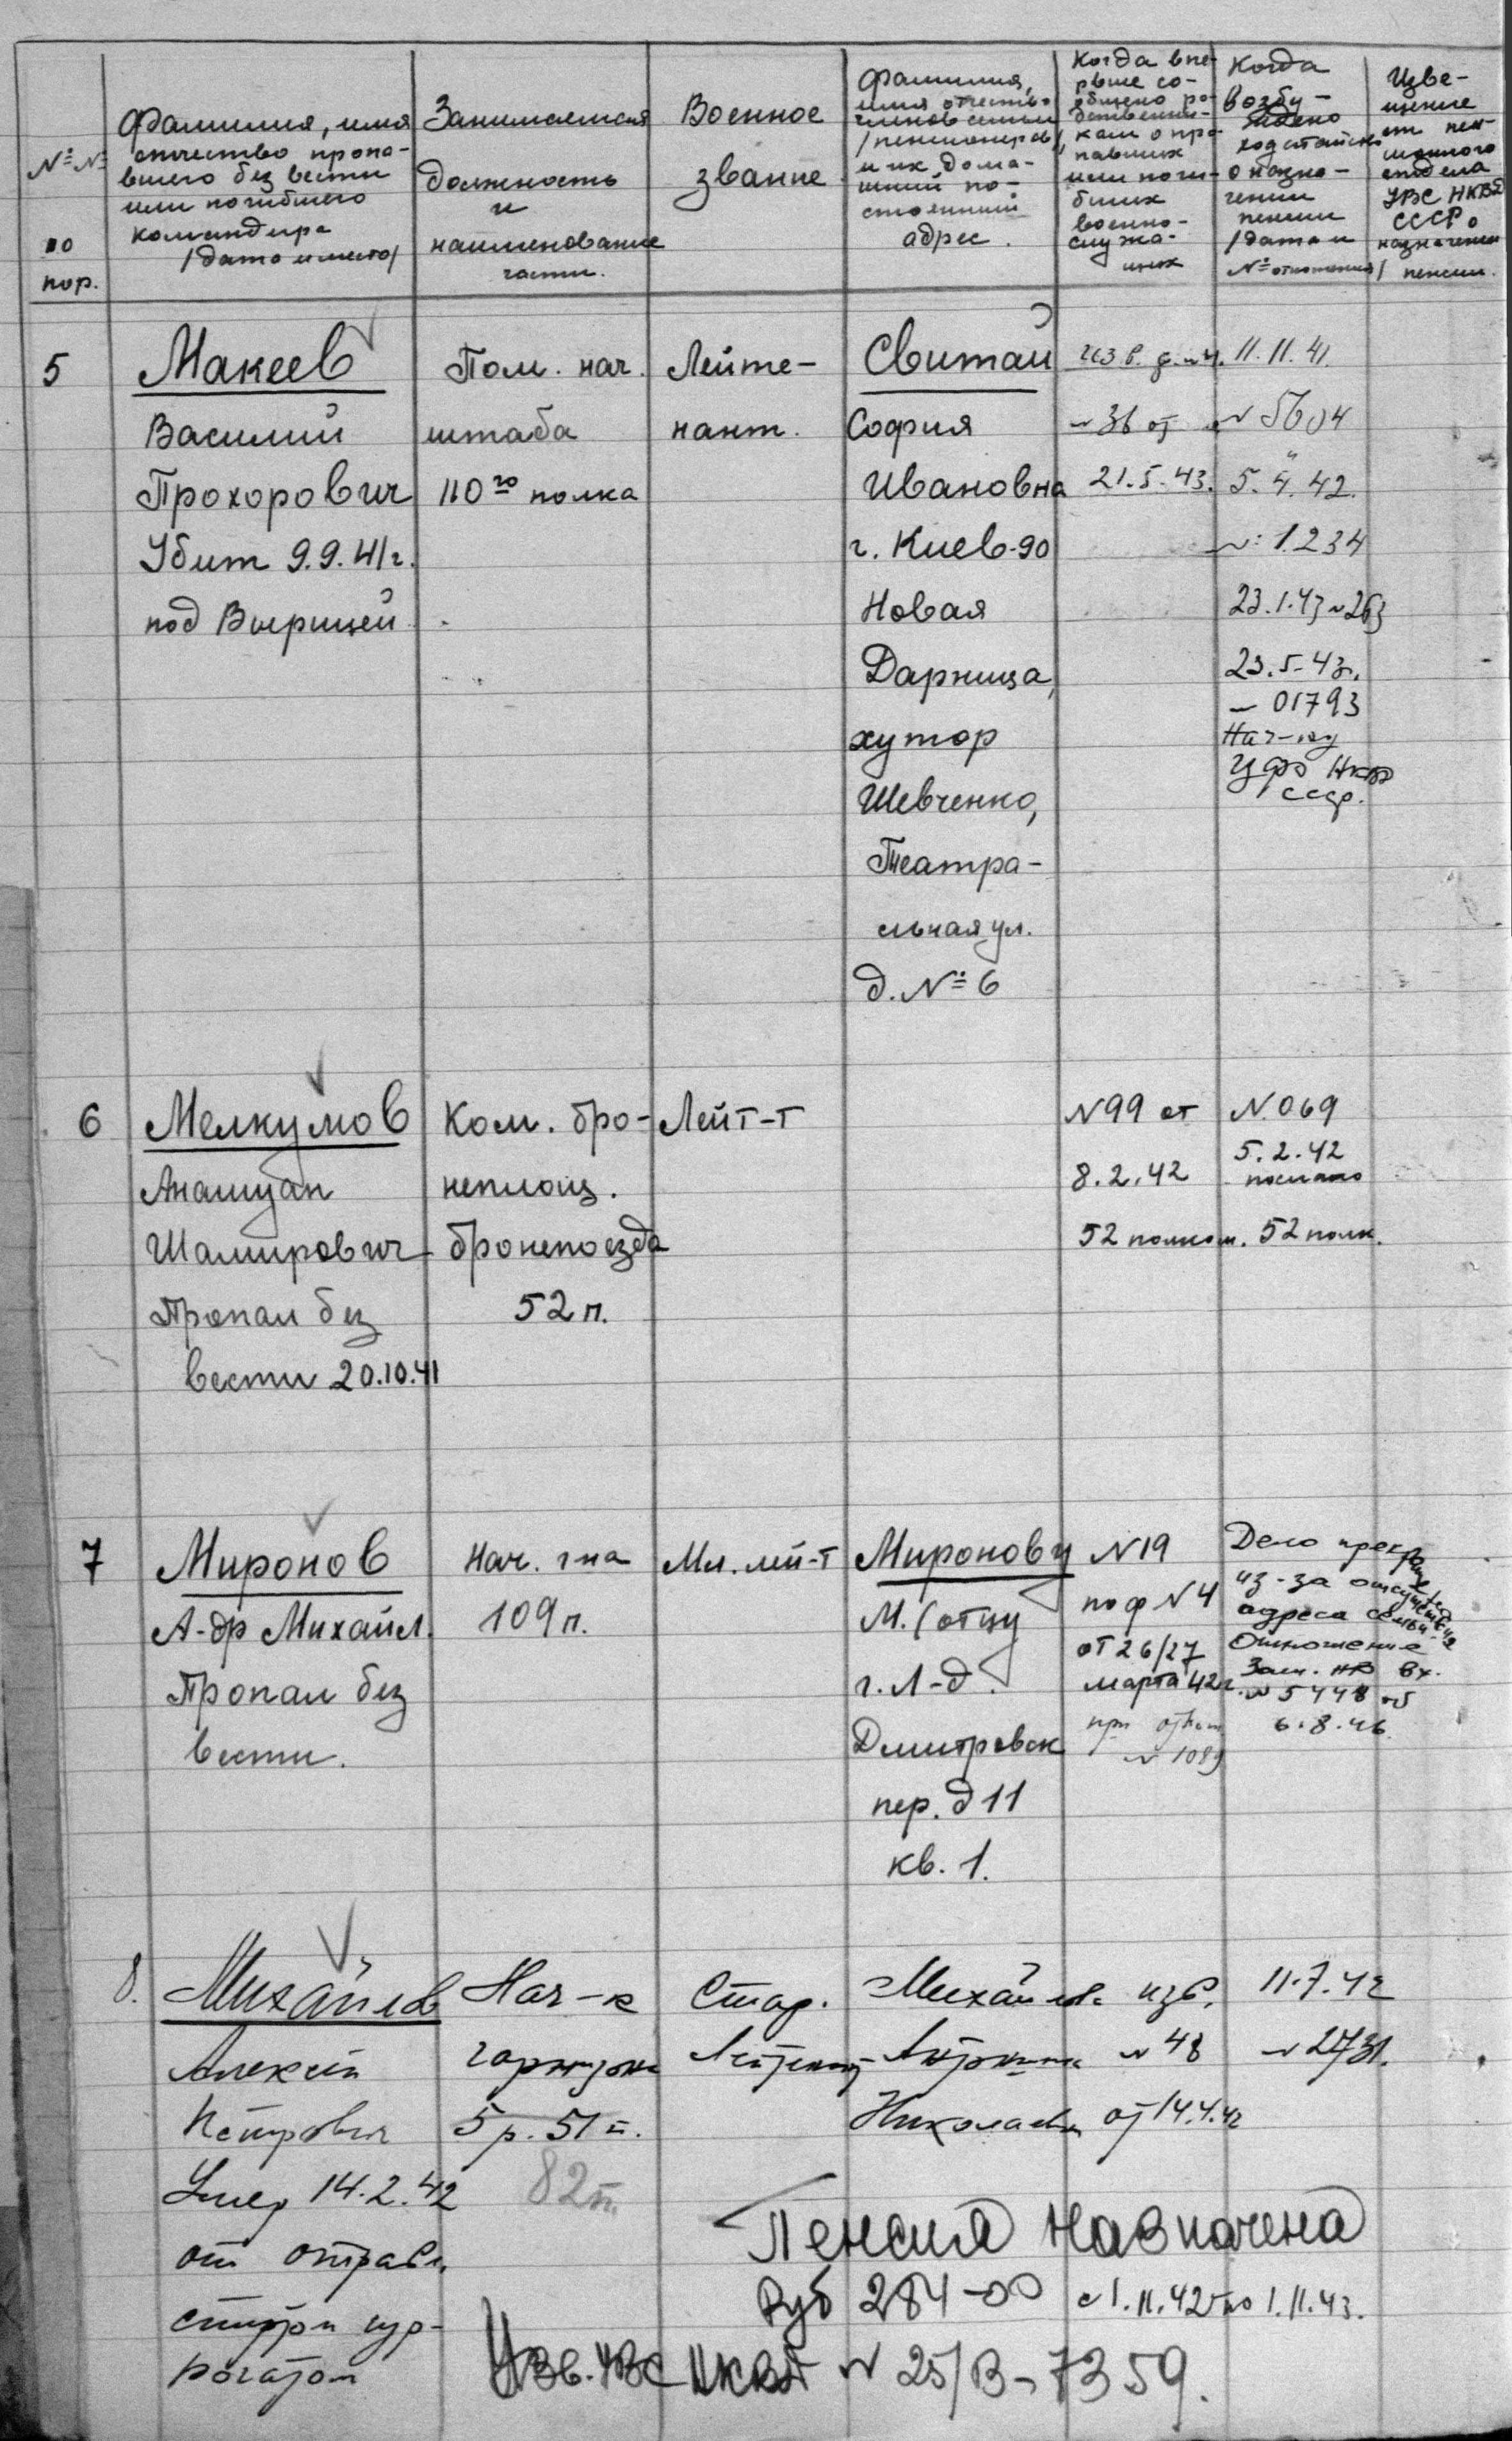 №№ по пор.
Фамилия, имя
отчество пропа-
вшего без вести
или погибшего
командира
/дата и место/
Занимаемая
должность
и
наименование
части.
Военное
звание
Фамилия,
имя отчество
членов семьи
/пенсионеров/
и их дома-
шний по-
стоянный
адрес.
Когда впе-
рвые со-
общено ро-
дственни-
кам о про-
павших
или поги-
бших
военно-
служа-
щих
Когда
возбу-
ждено
ходатайство
о назна-
чении
пенсии
/дата и
№ отношения/
Изве-
щение
от пен-
сионного
отдела
УВС НКВД
СССР о
назначении
пенсии.
5
Макеев
Василий
Прохорович
Убит 9.9.41г.
под Вырицей
Пом. нач.
штаба
110го полка
Лейте-
нант.
Свитай
София
Ивановна
г. Киев-90
Новая
Дарница,
хутор
Шевченко,
Театра-
льная ул.
д. № 6
изв. ф. № 4.
№ 36 от
21.5.43.
11.11.41.
№ 5604
5.4.42.
№ 1234
23.1.43 № 263
23.5.43г.
– 01793
Нач-ку
ЦФО НКВД
СССР.
6
Мелкумов
Шамирович
Пропал без
вести 20.10.41
Ком. бро-
неплощ.
бронепоезда
52 п.
Лейт-т
N99 от
8.2.42
52 полком.
N.069
5.2.42
послано
52 полк.
7
Миронов
А-др Михайл.
Пропал без
вести.
Нач. г-на
109 п.
Мл. лей-т
Миронову
М. (отцу
г. Л-д.
Дмитровск
пер. д 11
кв. 1.
N19
по ф N4
от 26/27
марта 42г.
при отнош.
№ 1089
Дело прекращено
из-за отсутствия
адреса семьи.
Отношение
Вх.
№ 5448 от
6.8.46.
8.
Михайлов
Алексей
Петрович
Умер 14.2.42
от отравл.
рогатом
Нач-к
гарнизона
5 р. 51 п.
82 п.
Стар.
Лейтенант
Михайлова
Николаевна
изв.
№ 48
от 14.4.42
11.7.42
№ 2731.
Пенсия назначена
Руб 284-00 с 1.11.42 по 1.11.43.
Изв. УВС НКВД № 25/В-7359.